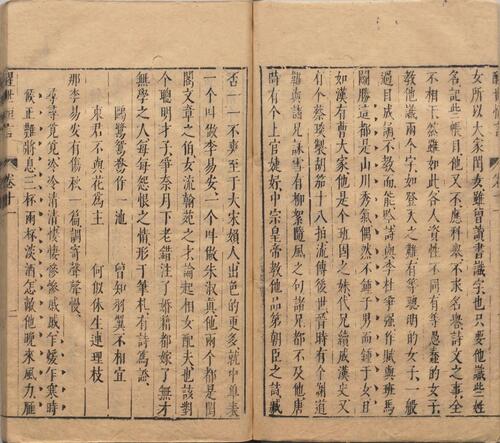 女所以大家閨女雖曾讀書識字也只要他識些姓
名記些帳目他又不應科舉不求名譽詩文之事全
不相干然雖如此各人資性不同有等愚蠢的女子
教他識兩个字如登天之難有等聰明的女子一般
過目成誦不教而能吟詩與李杜爭強作賦與班馬
鬪勝這都是山川秀氣偶然不鍾于男而鍾于女且
如漢有曹大家他是个班固之妹代兄續成漢史又
有个蔡琰製胡笳十八拍流傳後世晉時有个謝道
韞與諸兄詠雪有柳絮隨風之句諸兄都不及他唐
時有个上官婕妤中宗皇帝教他品第朝臣之詩臧
否一一不爽至于大宋婦人出色的更多就中單表
一个叫做李易安一个叫做朱淑真他兩个都是閨
閣文章之伯女流翰苑之才論起相女配夫也該對
个聰明才子爭奈月下老錯注了婚籍都嫁了無才
無學之人每每怨恨之情形于筆札有詩為證
鷗鷺鴛鴦作一池　曾知羽翼不相宜
東君不與花為主　何似休生連理枝
那李易安有傷秋一篇調寄聲聲慢
尋尋覓覓冷冷清清悽悽慘慘戚戚乍煖乍寒時
候正難將息三杯兩杯淡酒怎敵他晚來風力雁
醒世恒言　卷十一　二